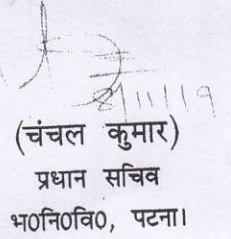 8/11/19
(चंचल कुमार)
प्रधान सचिव
भ0नि0वि0, पटना।